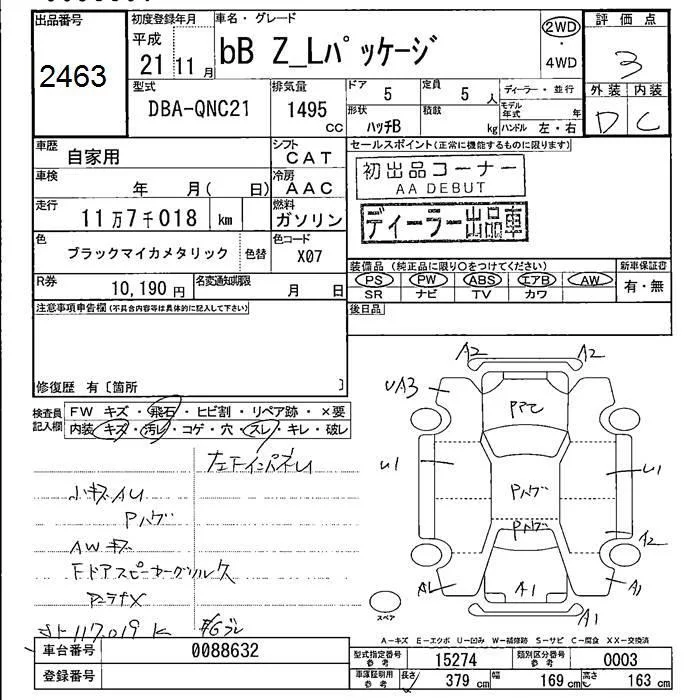 出品番号 初度登録年月 車名・グレード 評価点
2463 平成 21 11月 bB Z_Lパッケージ 2WD・4WD 3
型式 排気量 ドア 5 定員 5人 ディーラー・並行 外装 内装
DBA-QNC21 1495cc 形状 ハッチB 積載 kg モデル年式 年 ハンドル 左・右 D C
車歴 自家用 シフト CAT セールスポイント(正常に機能するものに限ります)
車検 年 月( 日) 冷房 AAC 初出品コーナー
AA DEBUT
走行 11万7千018 km 燃料 ガソリン ディーラー出品車
色 ブラックマイカメタリック 色替 色コード X07
装備品(純正品に限り○をつけてください) 新車保証書
PS PW ABS エアB AW 有・無
SR ナビ TV カワ
R券 10,190円 名変通知期限 月 日
注意事項申告欄(不具合内容等は具体的に記入して下さい) 後日品
修復歴 有〔箇所 〕
検査員記入欄 FW キズ・飛石・ヒビ割・リペア跡・×要
内装 キズ・汚レ・コゲ・穴・スレ・キレ・破レ
A2 A2
UA3
U1 U1
A2
A1 A1
A1
小キズAU
Pハゲ Pハゲ
Pハゲ
AWキズ
FドアスピーカーグリルX
スペア
A−キズ E−エクボ U−凹み W−補修跡 S−サビ C−腐食 XX−交換済
車台番号 0088632
登録番号
型式指定番号 参考 15274 類別区分番号 参考 0003
車庫証明用 参考 長さ 379cm 幅 169cm 高さ 163cm